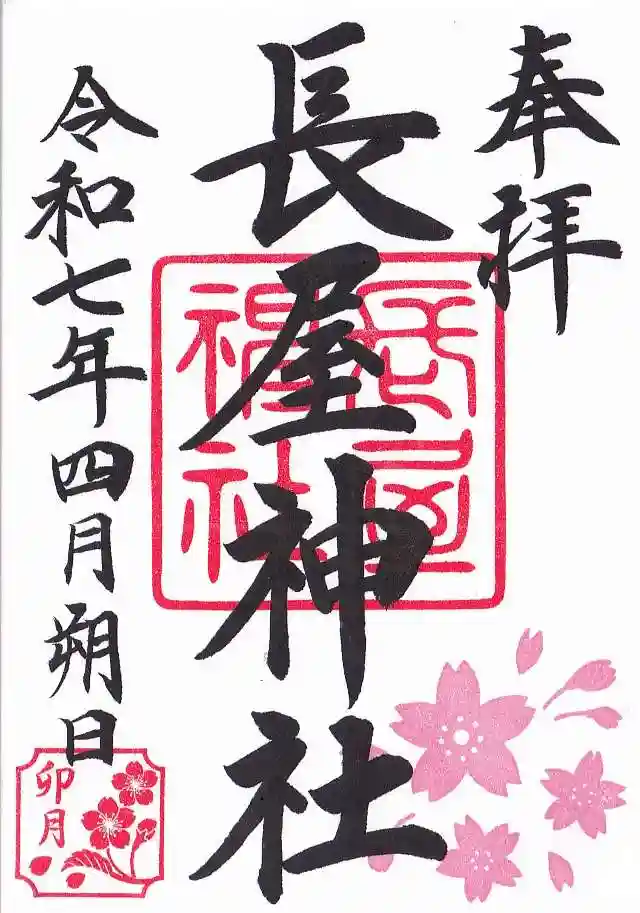 奉拝
長屋神社
長屋神社
令和七年四月朔日
卯月